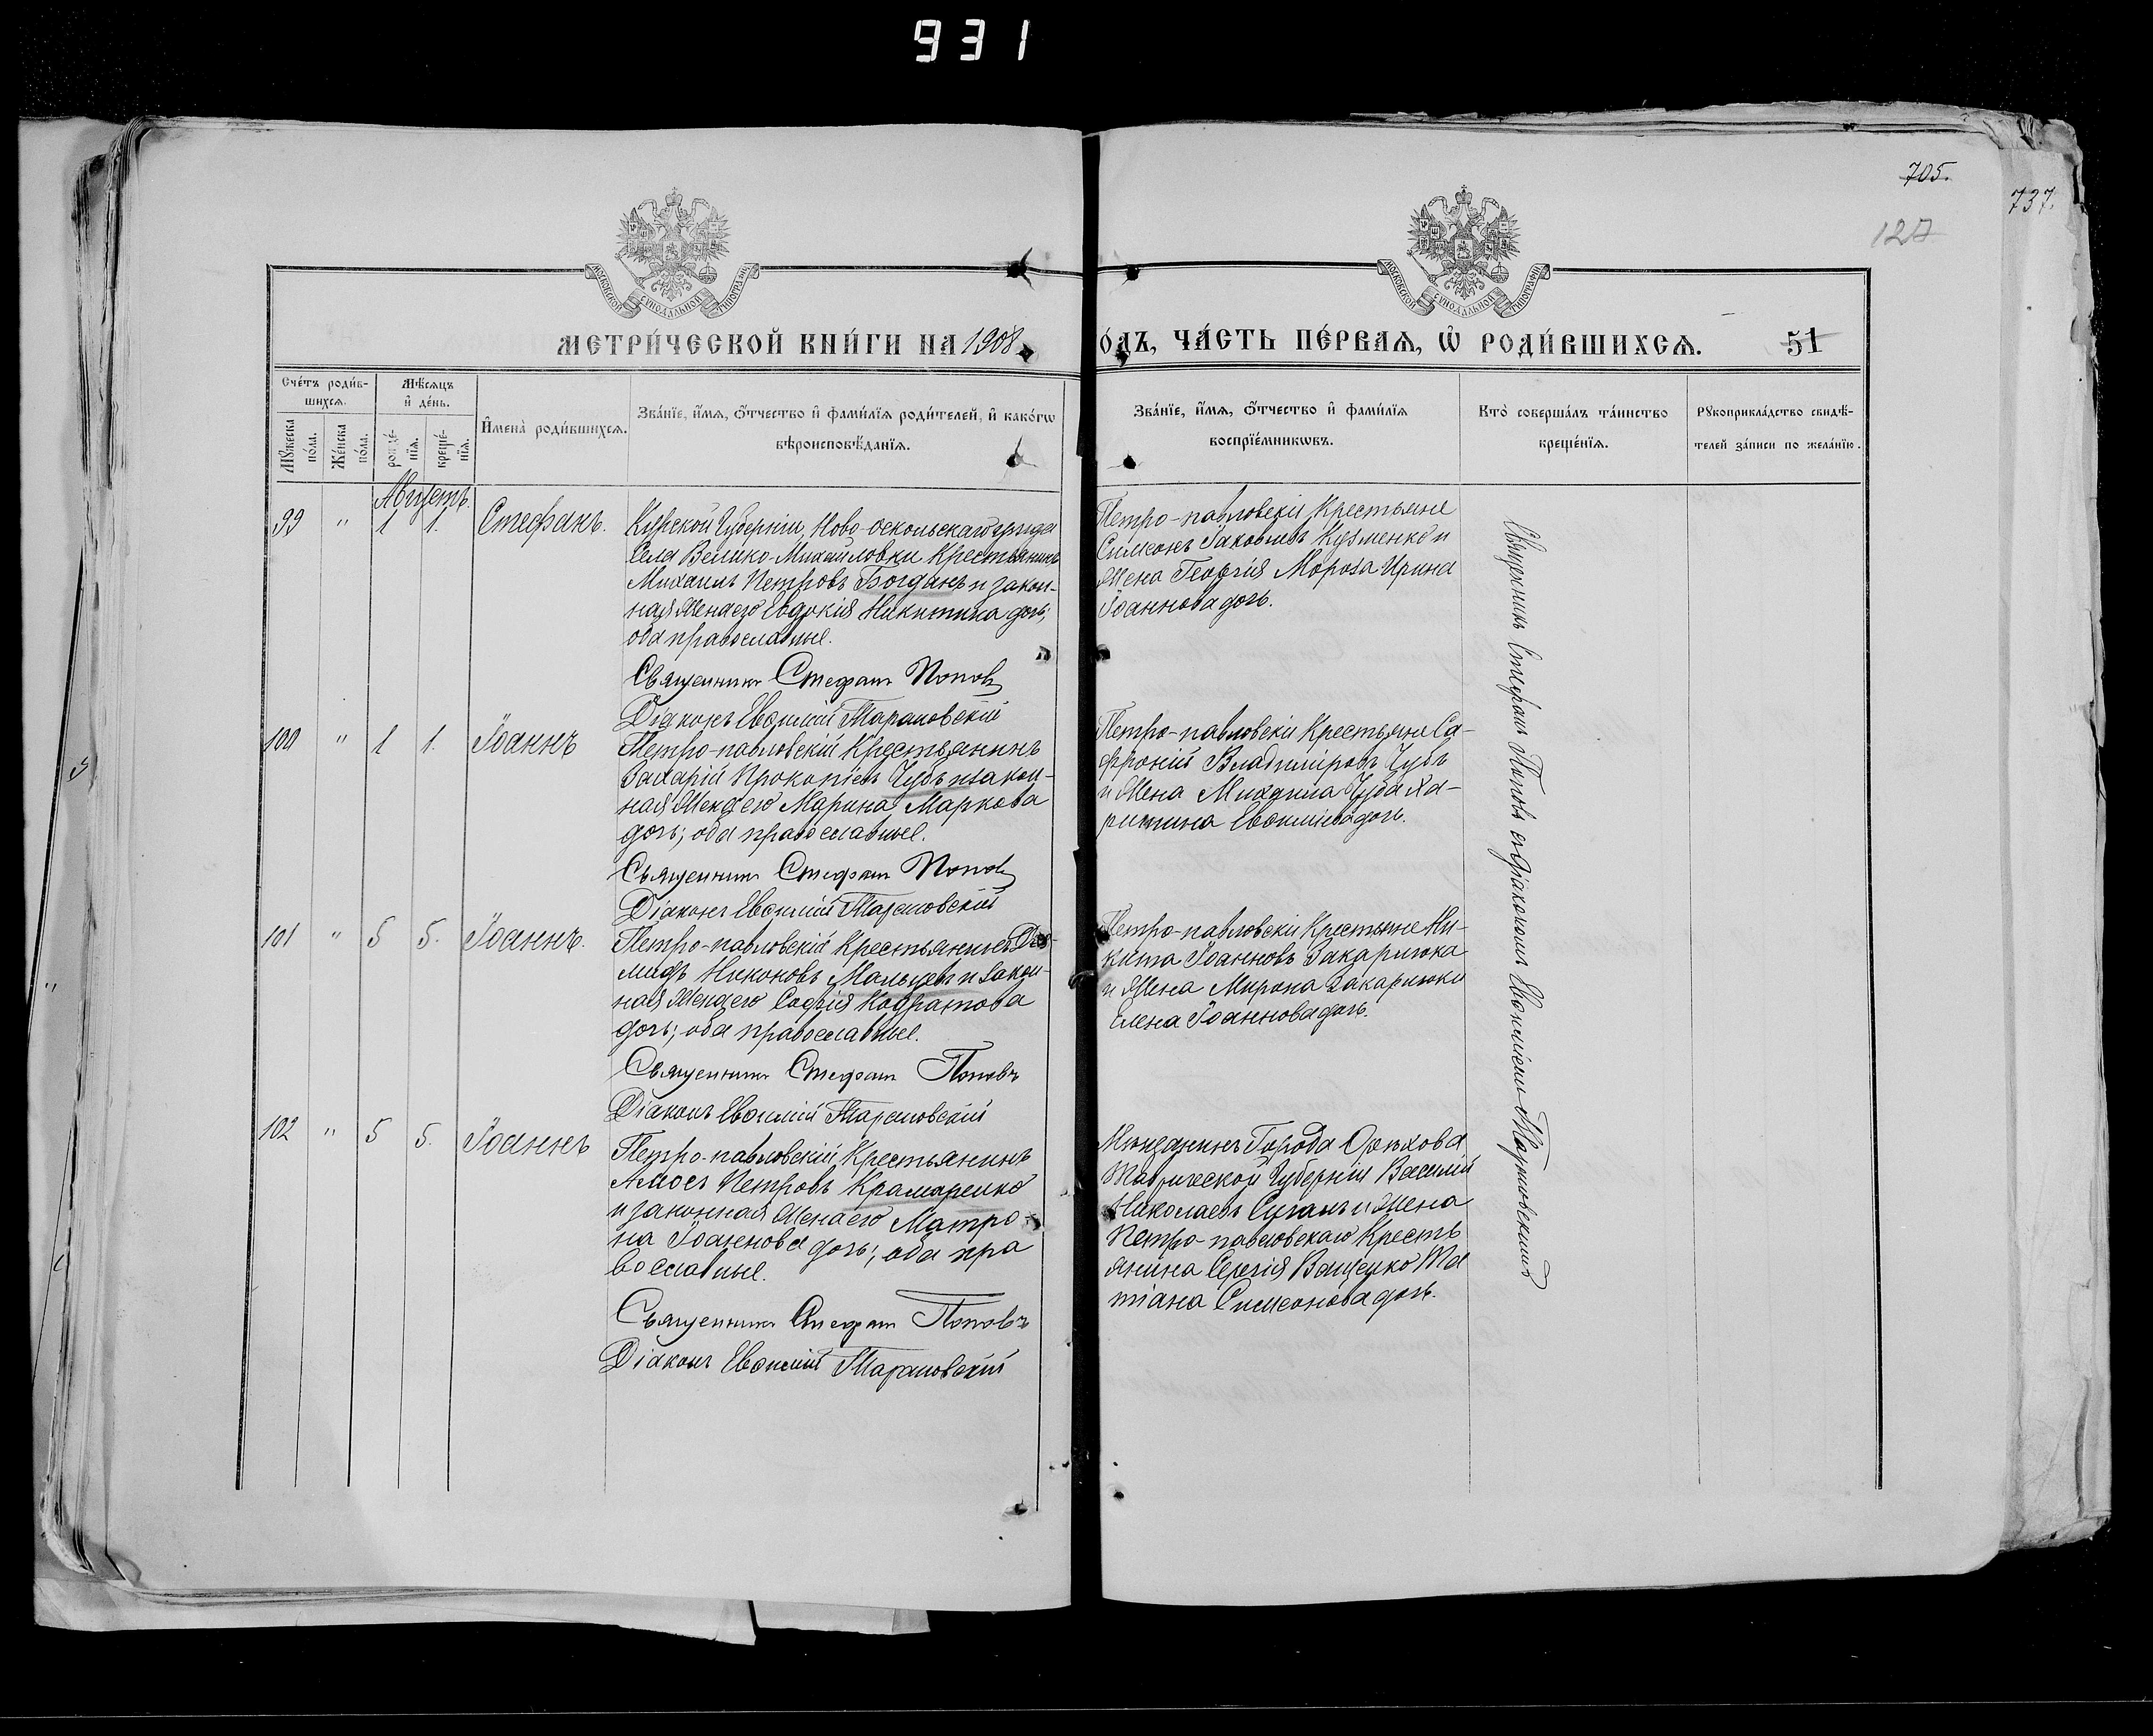 931
705.
737.
127
МОСКОВСКОЙ СѴНОДАЛЬНОЙ ТИПОГРАФІИ
МОСКОВСКОЙ СѴНОДАЛЬНОЙ ТИПОГРАФІИ
МЕТРИ́ЧЕСКОЙ КНИ́ГИ НА 1908
О́ДЪ, ЧА́СТЬ ПЕ́РВАѦ, Ѽ РОДИ́ВШИХСѦ.
51
Сче́тъ роди́в-
шихсѧ.
Мꙋ́жеска по́ла.
Же́нска по́ла.
Мѣ́сѧцъ
и҆ де́нь.
рожде́-
нїѧ.
креще́-
нїѧ.
И҆мена̀ роди́вшихсѧ.
Зва́нїе, и҆́мѧ, ѻ҆́тчество и҆ фами́лїѧ роди́телей, и҆ како́гѡ
вѣроисповѣ́данїѧ.
Зва́нїе, и҆́мѧ, ѻ҆́тчество и҆ фами́лїѧ
воспрїе́мникѡвъ.
Кто̀ соверша́лъ та́инство
креще́нїѧ.
Рꙋкоприкла́дство свидѣ́-
телей за́писи по жела́нїю.
Августъ.
99 " 1 1. Стефанъ.
Курской Губерніи, Ново-оскольскаго уѣзда
Села Велико-Михайловки Крестьянинъ
Михаилъ Петровъ Богданъ и закон-
ная Жена его Евдокія Никитина дочь;
оба православные.
Священникъ Стефанъ Поповъ
Діаконъ Евѳимій Тарановскій
Петро-павловскіи Крестьяне
Симеонъ Іаковлевъ Кузменко и
Жена Георгія Мороза Ирина
Іоаннова дочь.
100 " 1 1. Іоаннъ
Петро-павловскій Крестьянинъ
Захарій Прокопіевъ Чубъ и закон-
ная Жена его Марина Маркова
дочь; оба православные.
Священникъ Стефанъ Поповъ
Діаконъ Евѳимій Тарановскій
Петро-павловскіи Крестьяне Са-
фроній Владиміровъ Чубъ
и Жена Михаила Чуба Ха-
ритина Евѳиміева дочь.
101 " 5 5. Іоаннъ.
Петро-павловскій Крестьянинъ Діо-
мидъ Никоновъ Мальцевъ и закон-
ная Жена его Софія Кодратова
дочь; оба православные.
Священникъ Стефанъ Поповъ
Діаконъ Евѳимій Тарановскій
Петро-павловскіи Крестьяне Ни-
кита Іоанновъ Закарлюка
и Жена Мирона Закарлюки
Елена Іоаннова дочь.
102 " 5 5. Іоаннъ
Петро-павловскій Крестьянинъ
Амосъ Петровъ Крамаренко
и законная Жена его Матро-
на Іоаннова дочь; оба пра
вославные.
Священникъ Стефанъ Поповъ
Діаконъ Евѳимій Тарановскій
Мѣщанинъ Города Орѣхова
Таврической Губерніи Василій
Николаевъ и Жена
Петро-павловскаго Кресть
янина Сергія Ващенко Та
тіана Симеонова дочь.
Священникъ Стефанъ Поповъ съ діакономъ Евѳиміемъ Тарановскимъ